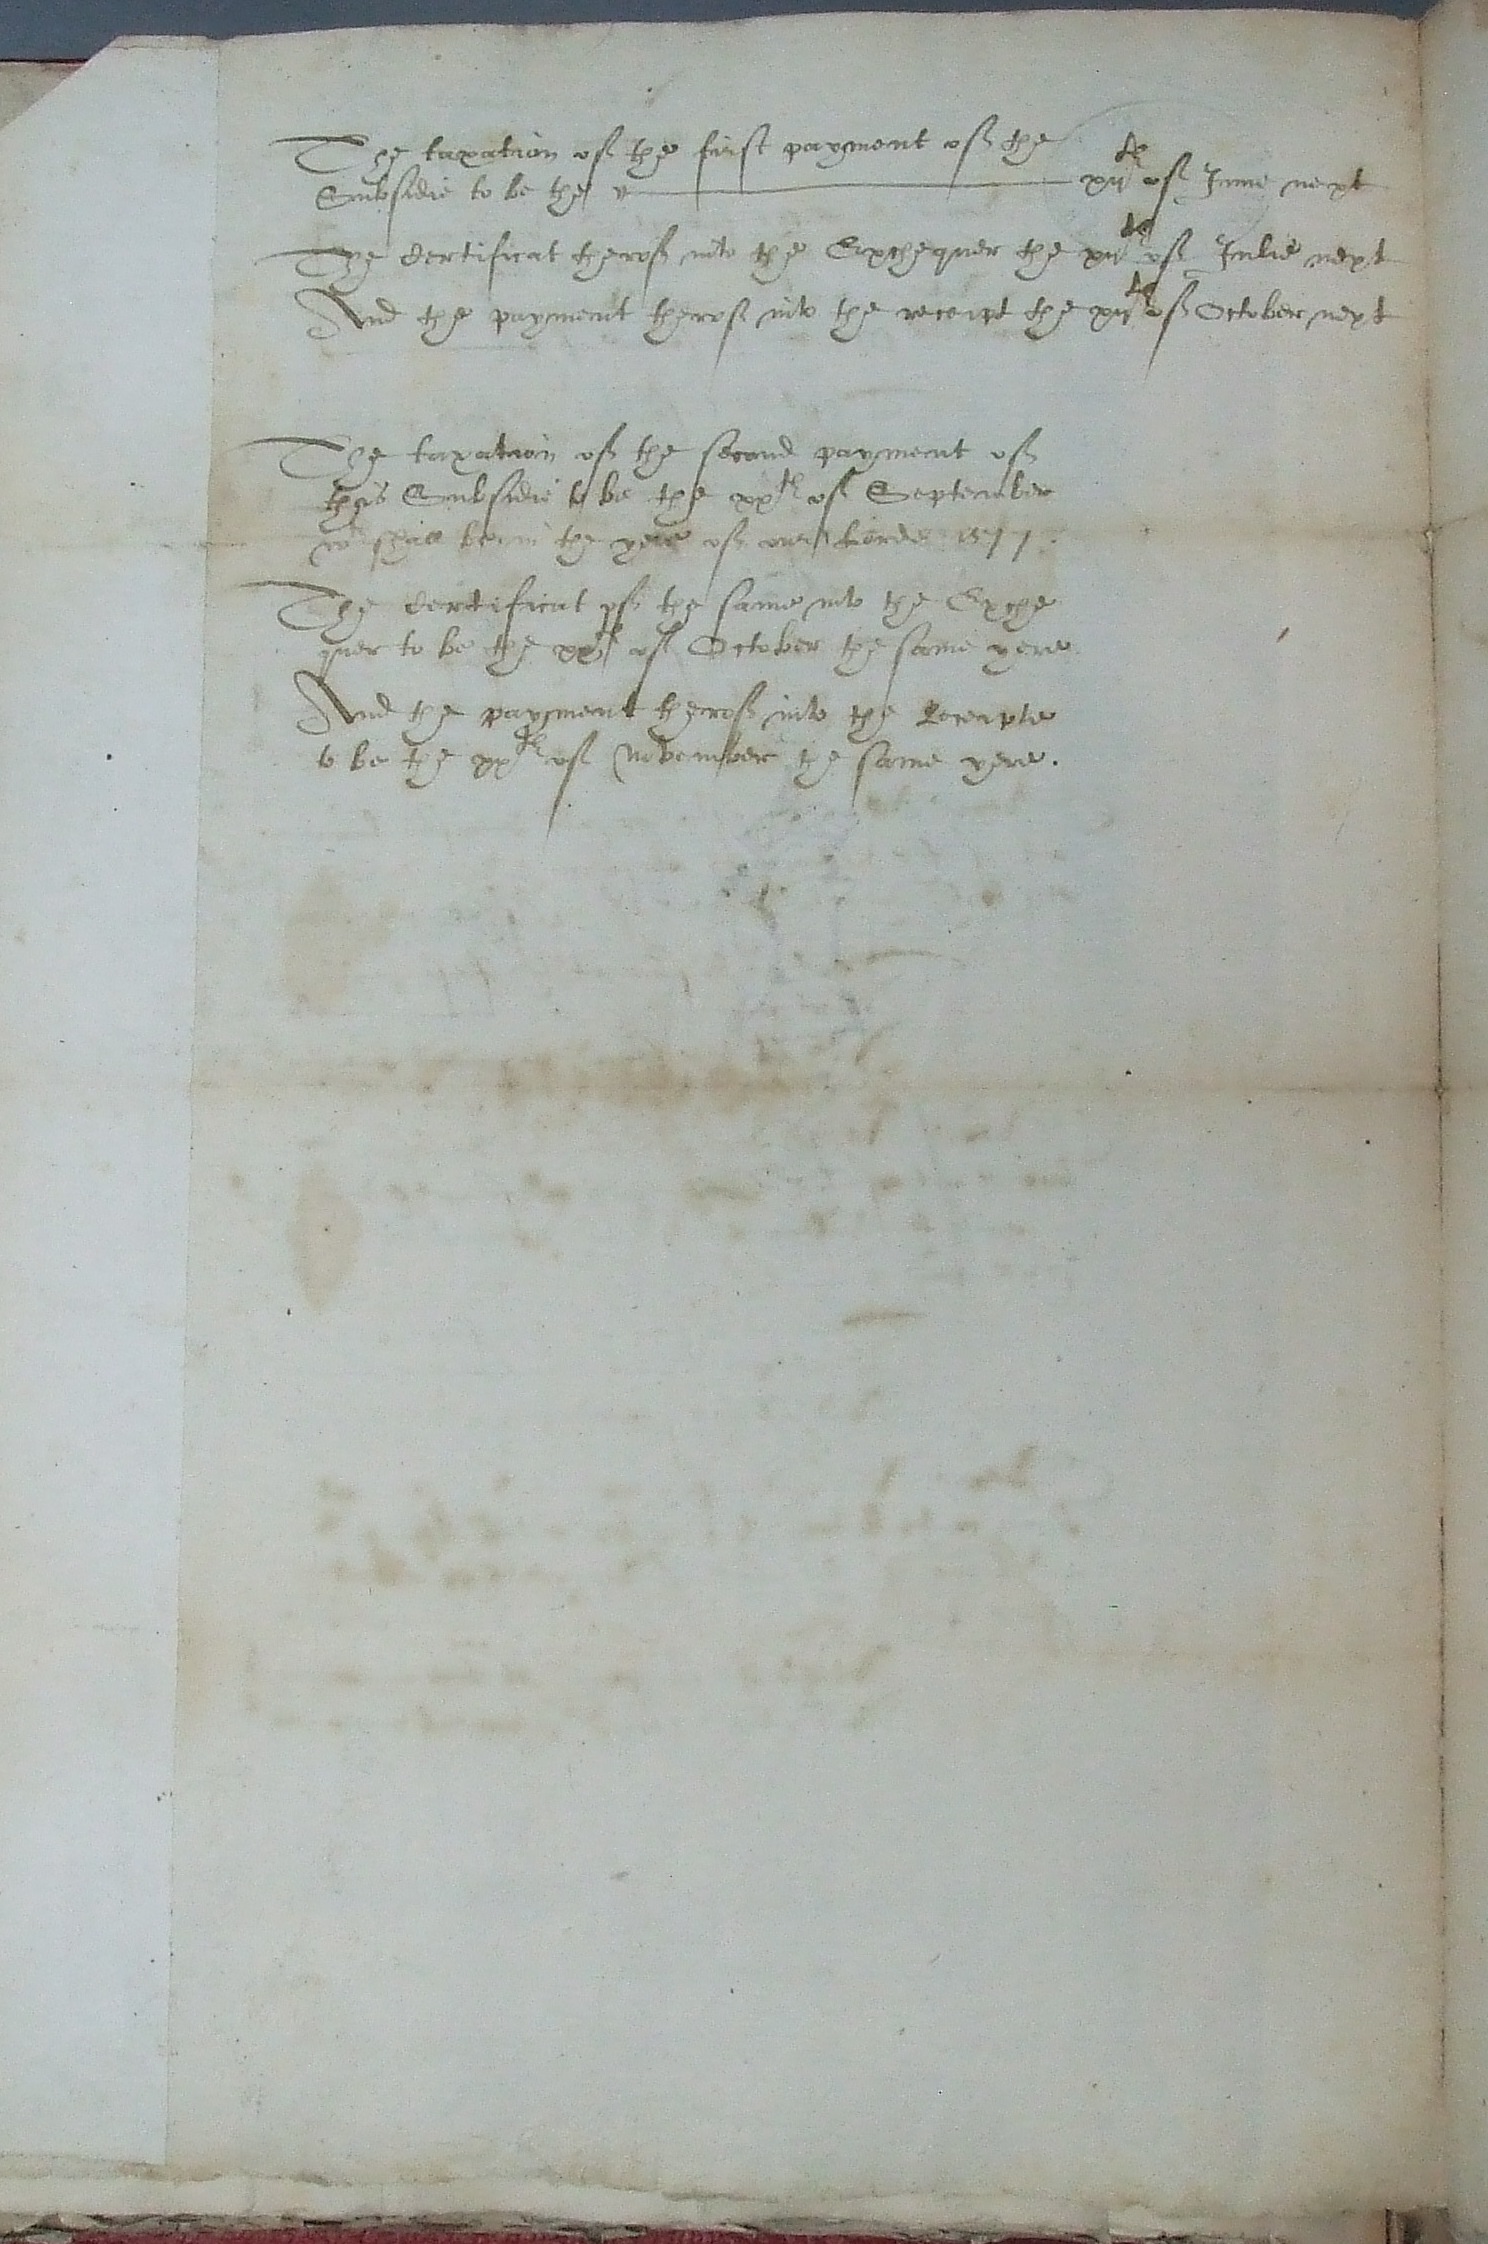 The taxation of the first payment of the
Subsidie to be the xijth of June next
The certificat therof into the Exchequer the xijth of Julie next
And the payment therof into the receipt the xijth of October next
The taxation of the second payment of
this Subsidie to be the xxth of September
wch shall be in the yere of our Lorde 1577.
The certificat of the same into the Exche
quer to be the xxth of October the same yere
And the payment therof into the Receipte
to be the xxth of November the same yere.